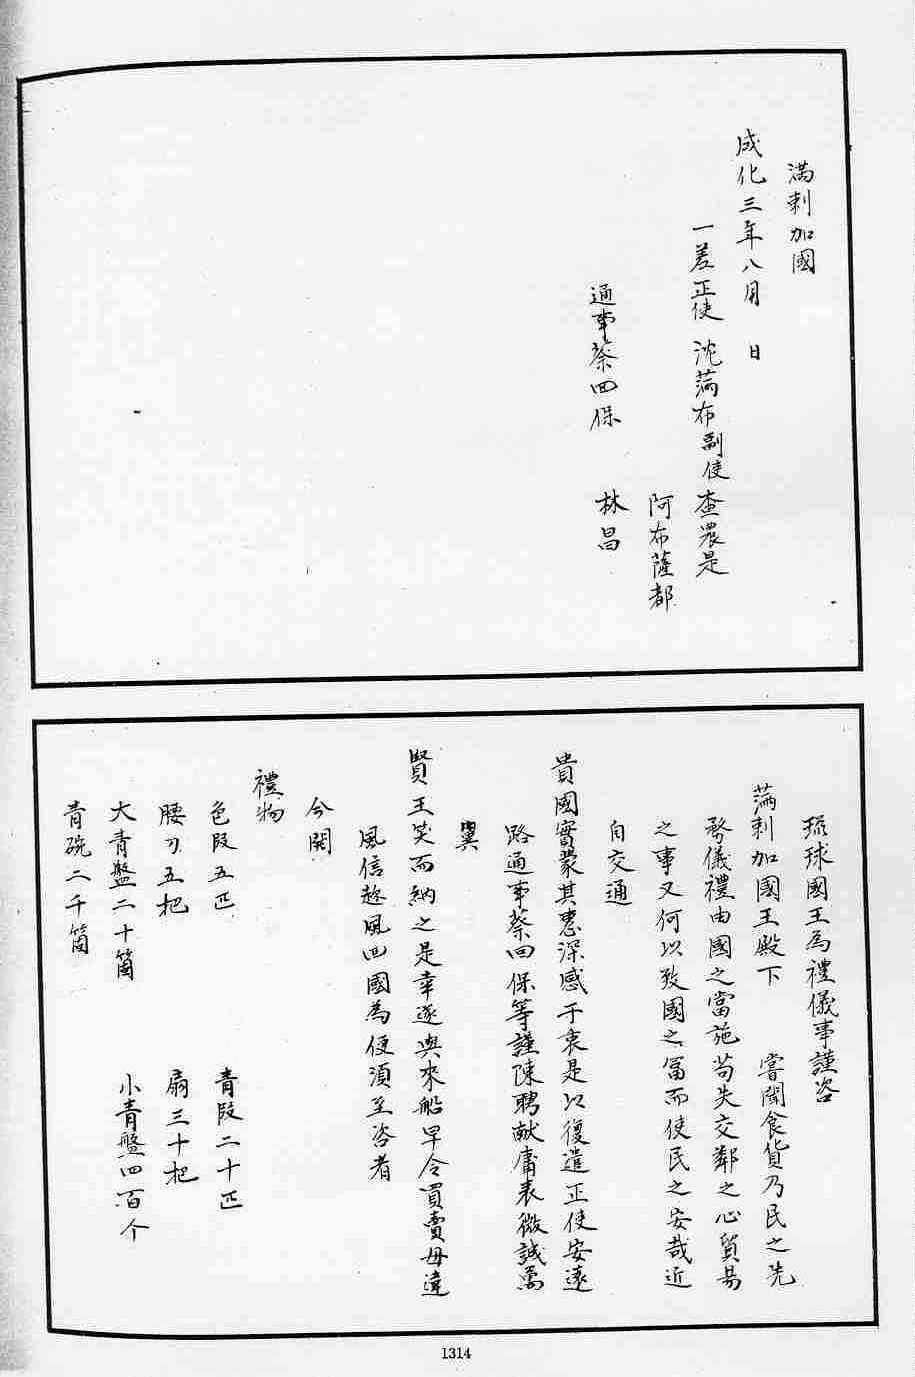 滿剌加國
成化三年八月　日
一差正使　沈滿布副使　查農是
阿布薩都
通事蔡回保　林昌
琉球國王為禮儀事謹咨
滿剌加國王殿下　嘗聞食貨乃民之先
務儀禮由國之當施苟失交鄰之心貿易
之事又何以致國之富而使民之安哉近
自交通
貴國實蒙其惠深感于衷是以復遣正使安遠
路通事蔡回保等謹陳聘献庸表微誠萬
冀
賢王笑而納之是幸遂與來船早令買賣毋違
風信趂風回國為便須至咨者
今開
禮物
色段五匹　青段二十匹
腰刀五把　扇三十把
大青盤二十箇　小青盤四百个
青碗二千箇
1314